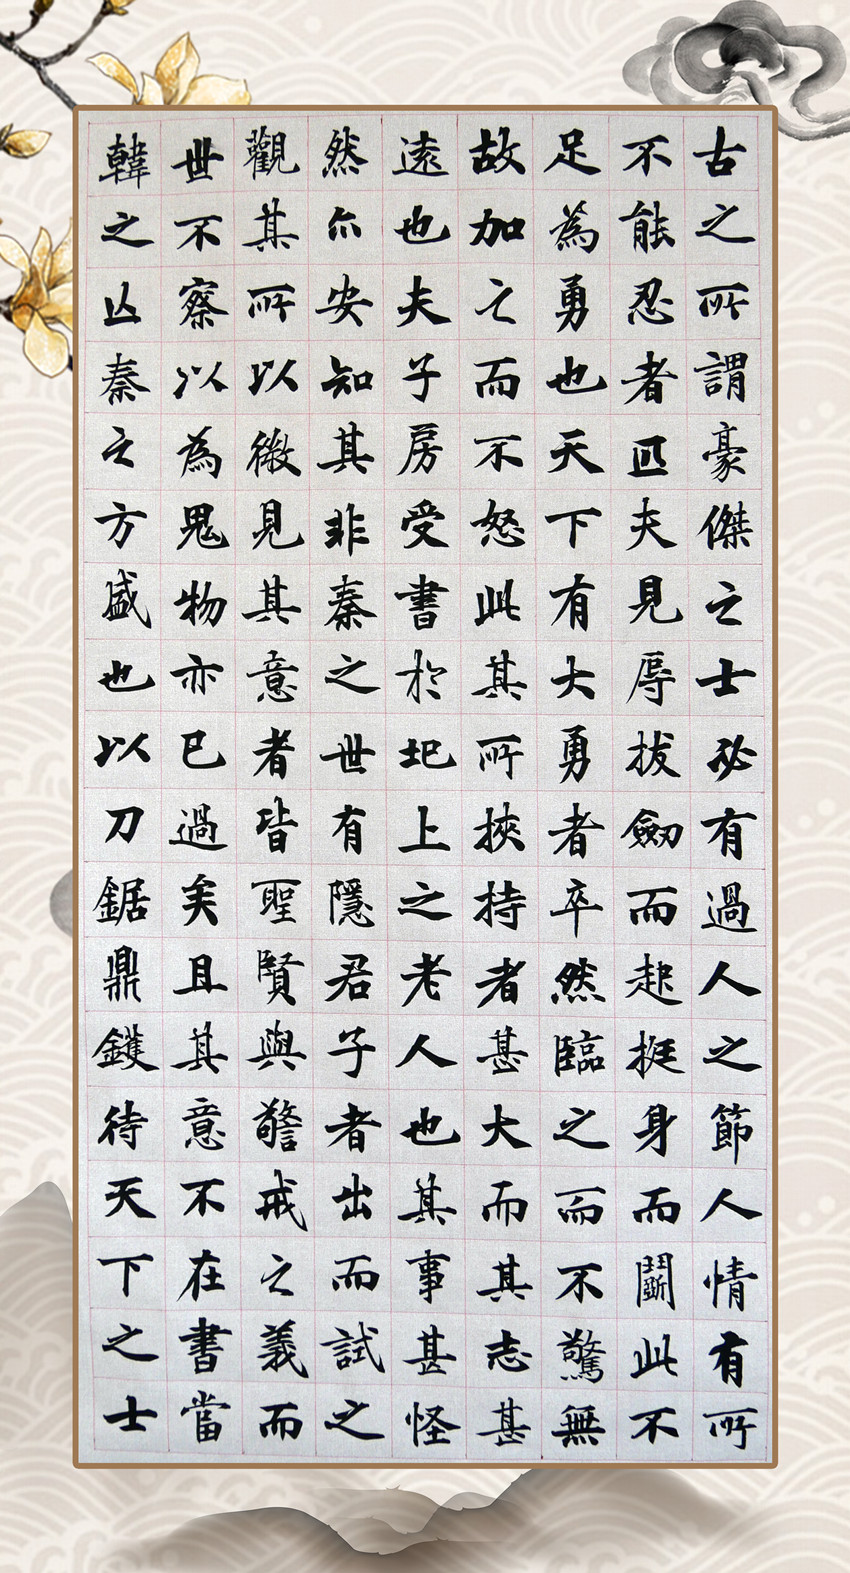 古之所謂豪傑之士必有過人之節人情有所
不能忍者匹夫見辱拔劒而起挺身而鬬此不
足為勇也天下有大勇者卒然臨之而不驚無
故加之而不怒此其所挾持者甚大而其志甚
遠也夫子房受書於圯上之老人也其事甚怪
然尒安知其非秦之世有隱君子者出而試之
觀其所以微見其意者皆聖賢與警戒之義而
世不察以為鬼物亦已過矣且其意不在書當
韓之亾秦之方盛也以刀鋸鼎鑊待天下之士